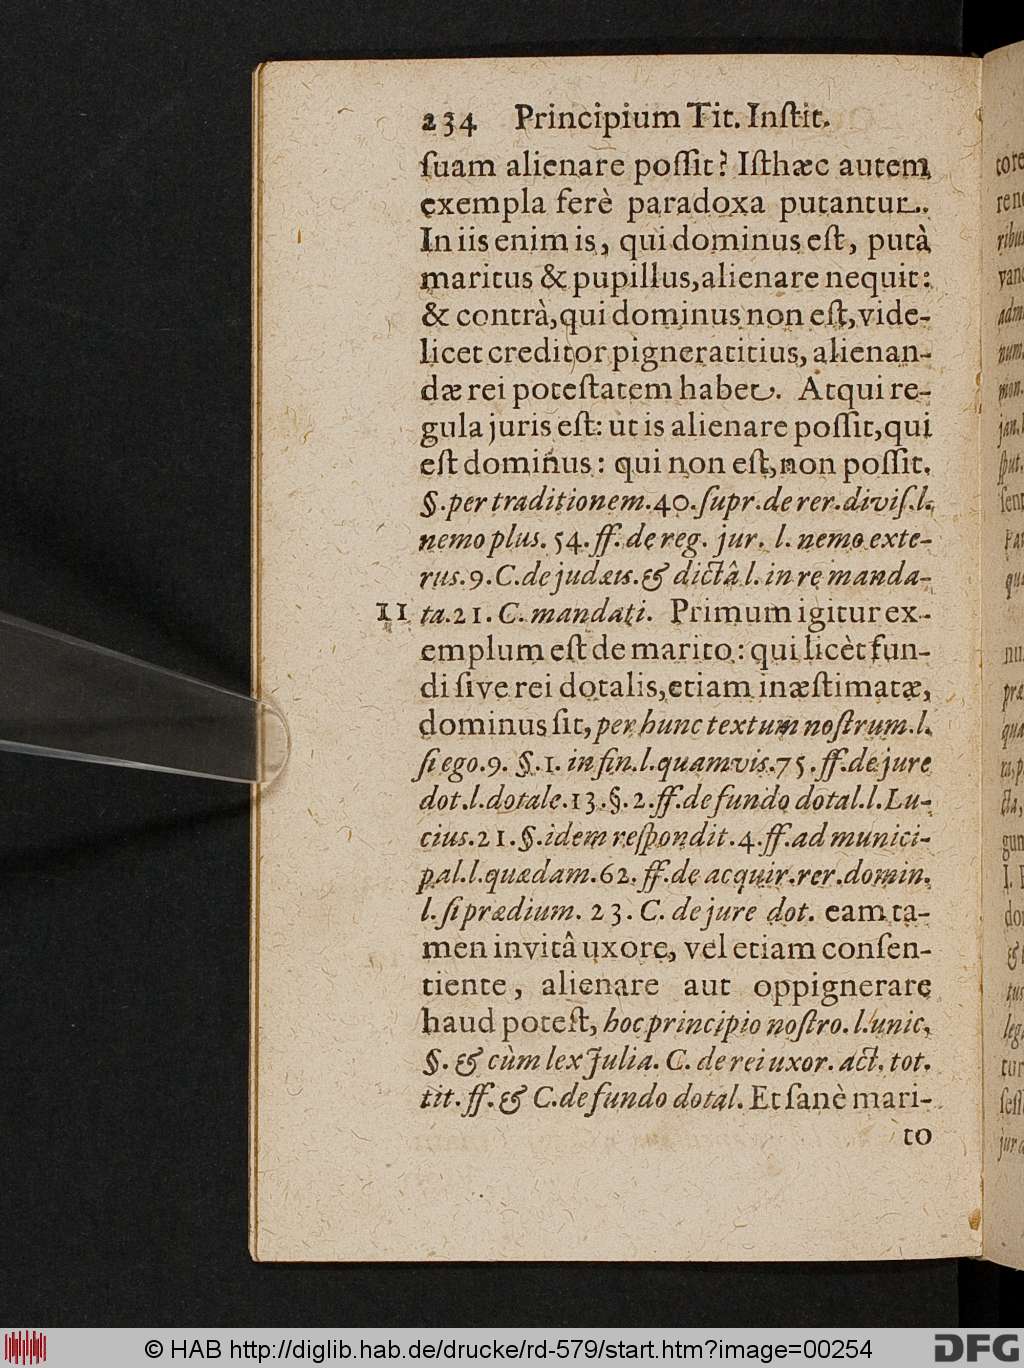 234 Principium Tit. Inſtit.
ſuam alienare poſſit? Iſthæc autem
exempla ferè paradoxa putantur.
In iis enim is, qui dominus eſt, putà
maritus & pupillus, alienare nequit:
& contrà, qui dominus non eſt, vide-
licet creditor pigneratitius, alienan-
dæ rei poteſtatem habet. Atqui re-
gula juris eſt: ut is alienare poſſit, qui
eſt dominus: qui non eſt, non poſſit.
§. per traditionem. 40. ſupr. de rer. diviſ. l.
nemo plus. 54. ff. de reg. jur. l. nemo exte-
rus. 9. C. de judæis. & dictâ l. in re manda-
11 ta. 21. C. mandati. Primum igitur ex-
emplum eſt de marito: qui licèt fun-
di ſive rei dotalis, etiam inæſtimatæ,
dominus ſit, per hunc textum noſtrum. l.
ſi ego. 9. §. 1. in fin. l. quamvis. 75. ff. de jure
dot. l. dotale. 13. §. 2. ff. de fundo dotal. l. Lu-
cius. 21. §. idem reſpondit. 4. ff. ad munici-
pal. l. quædam. 62. ff. de acquir. rer. domin.
l. ſi prædium. 23. C. de jure dot. eam ta-
men invitâ uxore, vel etiam conſen-
tiente, alienare aut oppignerare
haud poteſt, hoc principio noſtro. l. unic.
§. & cùm lex Julia. C. de rei uxor. act. tot.
tit. ff. & C. de fundo dotal. Et ſanè mari-
to
© HAB http://diglib.hab.de/drucke/rd-579/start.htm?image=00254
DFG